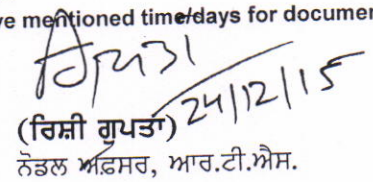 ve mentioned time/days for documen
24/12/15
(ਰਿਸ਼ੀ ਗੁਪਤਾ)
ਨੋਡਲ ਅਫ਼ਸਰ, ਆਰ.ਟੀ.ਐਸ.